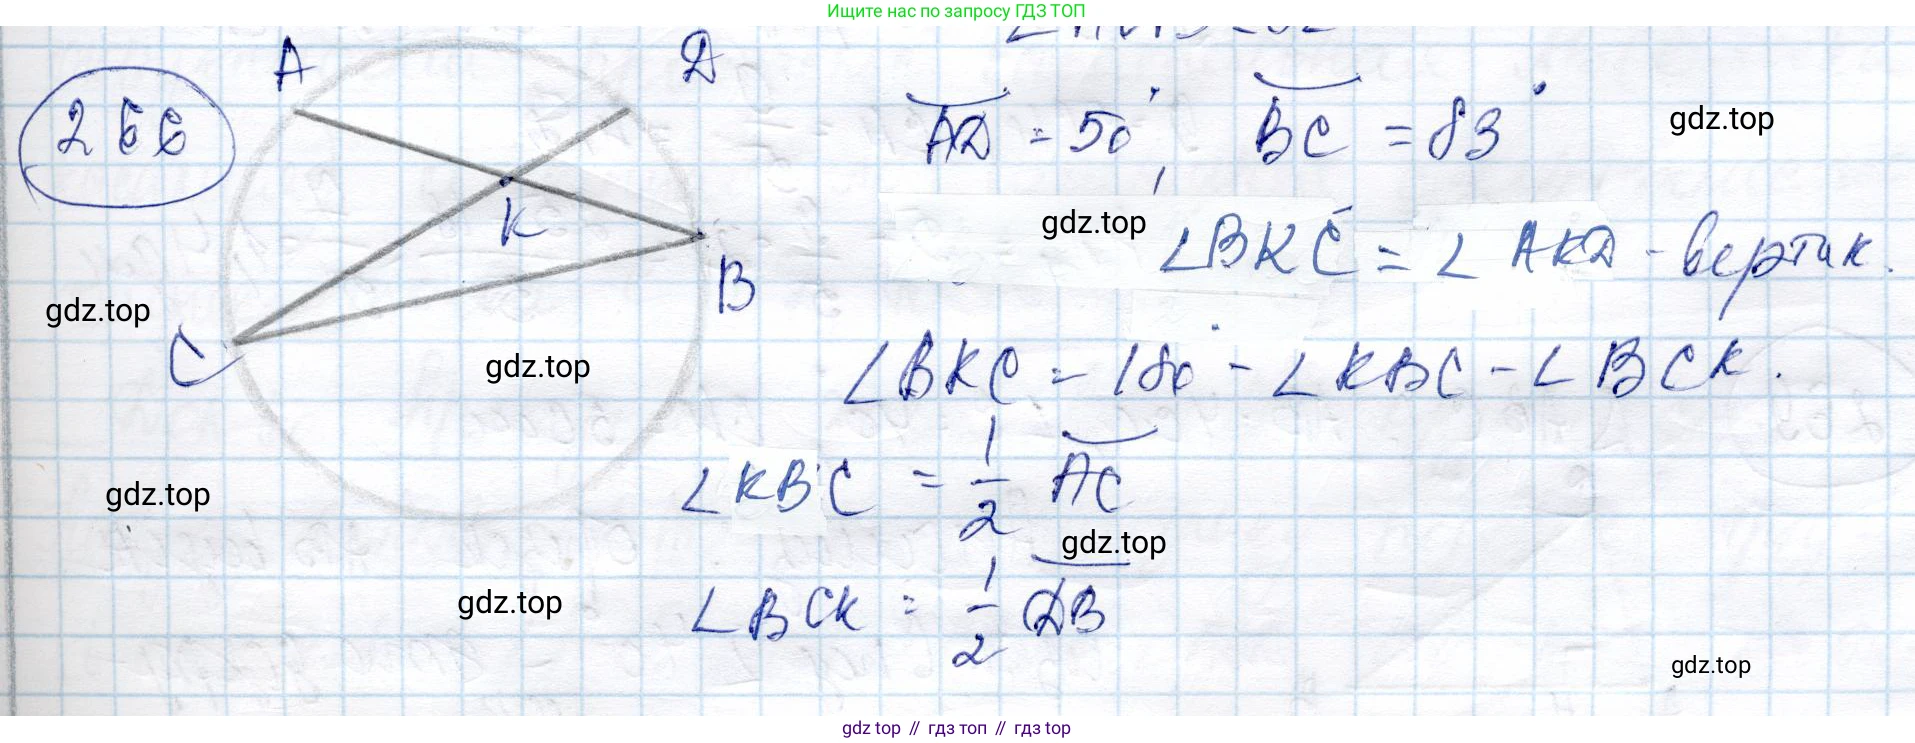 Ищите нас по запросу ГДЗ ТОП
256
A
D
K
B
C
AD = 50°, BC = 83°
gdz.top
gdz.top
∠BKC = ∠AKD - вертик.
gdz.top
∠BKC = 180 - ∠KBC - ∠BCK.
gdz.top
∠KBC = 1/2 AC
gdz.top
gdz.top
∠BCK = 1/2 DB
gdz.top
gdz.top
gdz top // гдз топ // гдз top